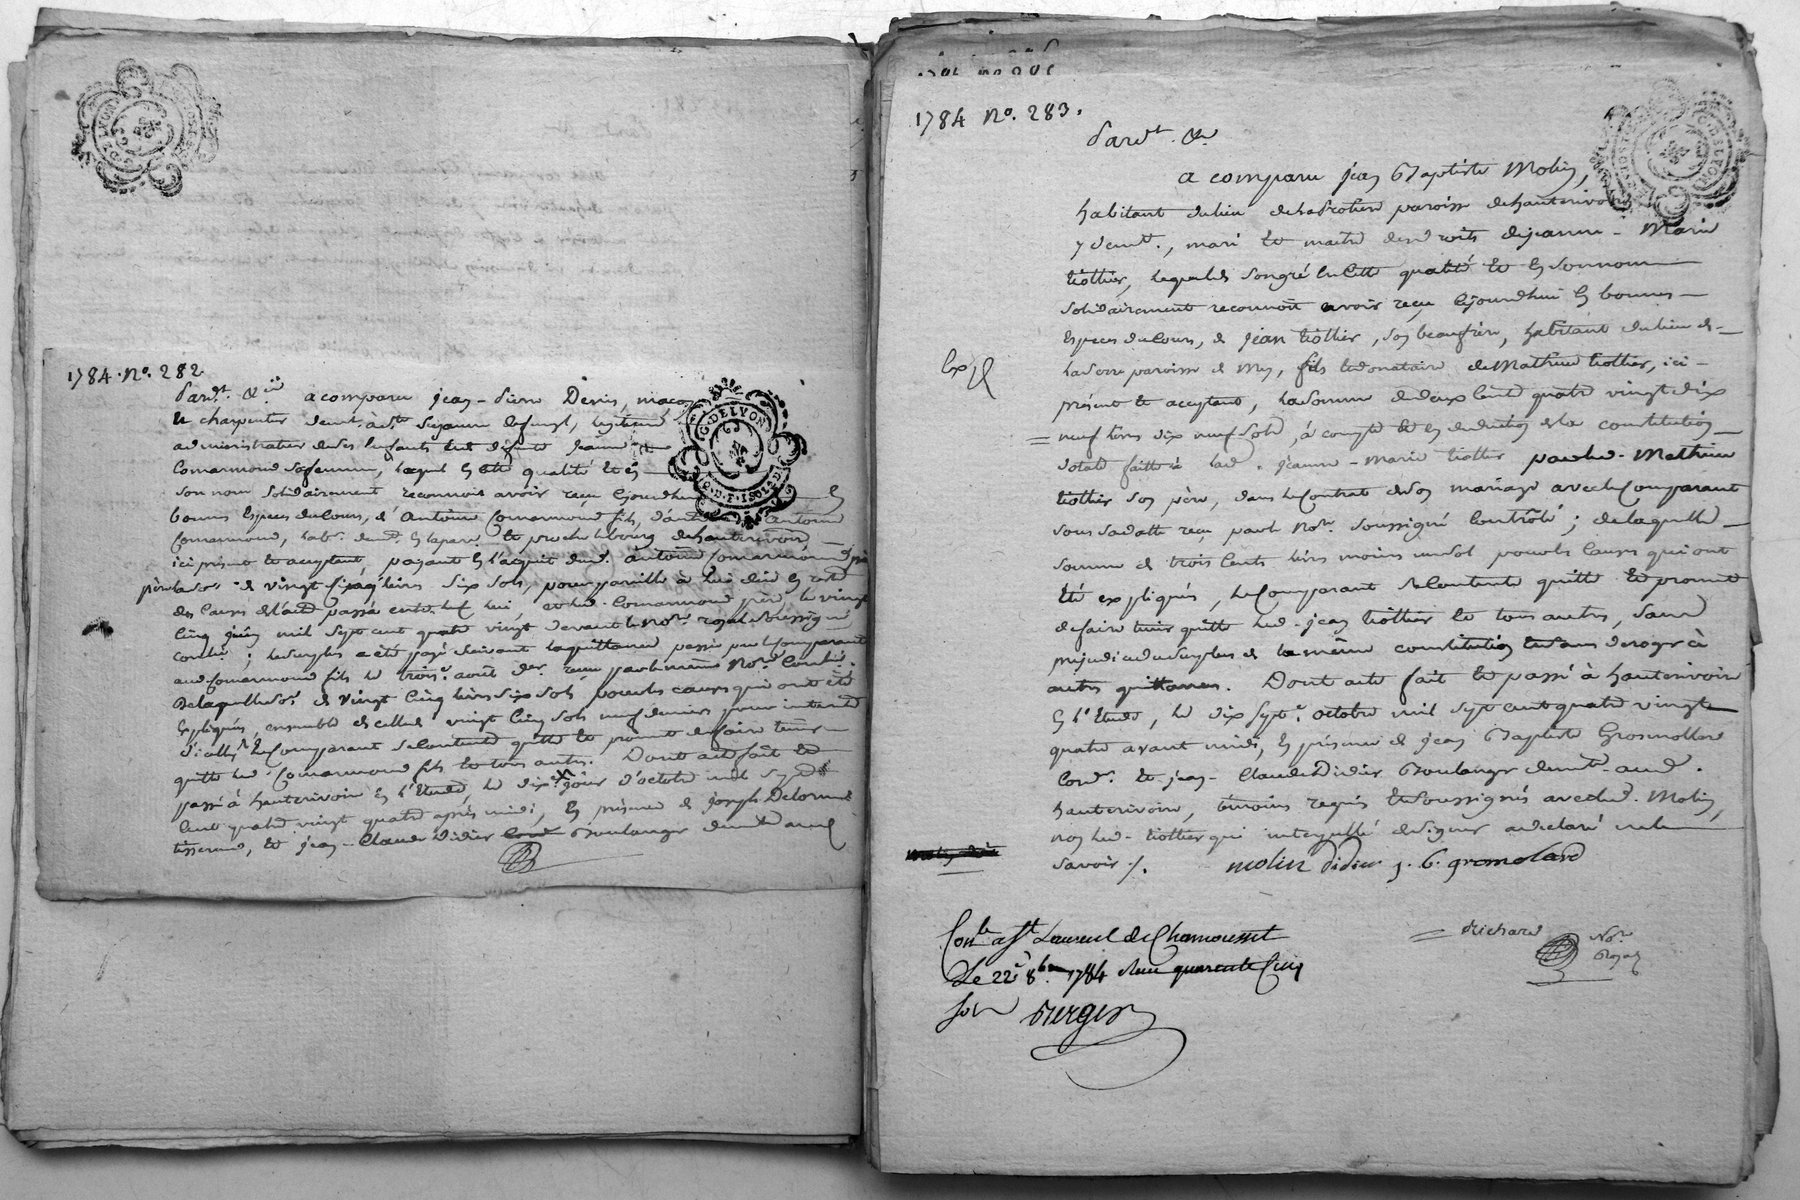 1784. No. 282.
Pard.t &.a a comparu jean-pierre Denis, maçon
et charpentier demt. à St. Suzanne legitime
administrateur de ses Enfants Defunte jeanne
Comarmond sa femme, lequel En cette qualité et En
son nom solidairement reconnoit avoir reçu cejourdhui En
bonnes Especes du Cours, d'Antoine Comarmond fils, d'autre Antoine
Comarmond, habt. demt. En la parr. et proche le bourg de hauterivoire
ici présent et acceptant, payant En l'acquit dud. antoine Comarmond
père la so.e de vingt cinq livres six sols, pour pareille à lui due En reste
des Causes de l'acte passé entre lui, et led. Comarmond père le vingt
Cinq juin mil sept cent quatre vingt devant le no.re royal soussigné
contlé. ; le surplus a été payé suivant la quittance passée par le Comparant
aud Comarmond fils le trois.e août der. reçue par le même No.re Contlé.
De laquelle so.e de vingt Cinq livres six sols, pour les causes qui ont été
Expliquées, ensemble de celle de vingt Cinq sols neuf deniers pour interets
d'icelle le Comparant se Contente quitte et promet de faire tenir
quitte led. Comarmond fils et tous autres. Dont acte fait et
passé à hauterivoire En l'Etude, le dix.e jour d'octobre mil sept
Cent quatre vingt quatre après midi, En présence de joseph Delorme
tisserand, et jean-Claude Didier Boulanger demts. aud
1784 No. 283.
Pard.t &.a
a comparu jean Baptiste Molin,
habitant du lieu de la paroisse de hauterivoire
y demt., mari et maitre des droits de jeanne-Marie
tiollier, lequel de son gré En cette qualité et En son nom
solidairement reconnoit avoir reçu cejourdhui En bonnes
Especes du Cours, de jean tiollier, son beaufrère, habitant du lieu de
la serre paroisse de Mey, fils et donataire de Mathieu tiollier, ici
présent et acceptant, la somme de deux Cent quatre vingt dix
neuf livres dix neuf sols, à compte et En deduction de la constitution
dotale faitte à lad. jeanne-Marie tiollier par led. Mathieu
tiollier son père, dans le Contrat de son mariage avec le Comparant
sous sa datte reçu par le No.re soussigné Contrôlé ; de laquelle
somme de trois Cents livres moins un sol pour les Causes qui ont
été expliquées, le Comparant se Contente quitte et promet
de faire tenir quitte led. jean tiollier et tous autres, sans
prejudice du surplus de la même constitution et sans deroger à
autres quittances. Dont acte fait et passé à hauterivoire
En l'Etude, le dix sept.e octobre mil sept cent quatre vingt
quatre avant midi, En présence de jean Baptiste Grosmollard
Cord.r et jean-Claude Didier Boulanger demts. aud.
hauterivoire, témoins requis et soussignés avec led. Molin,
non led. tiollier qui interpellé de signer a declaré ne le
savoir ./.
molin didier j. b. gromolard
Richard No.re Royal
Con.lé a St Laurent de Chamousset
Le 22e 8bre 1784 Reçu quarente Cinq
sols Berger